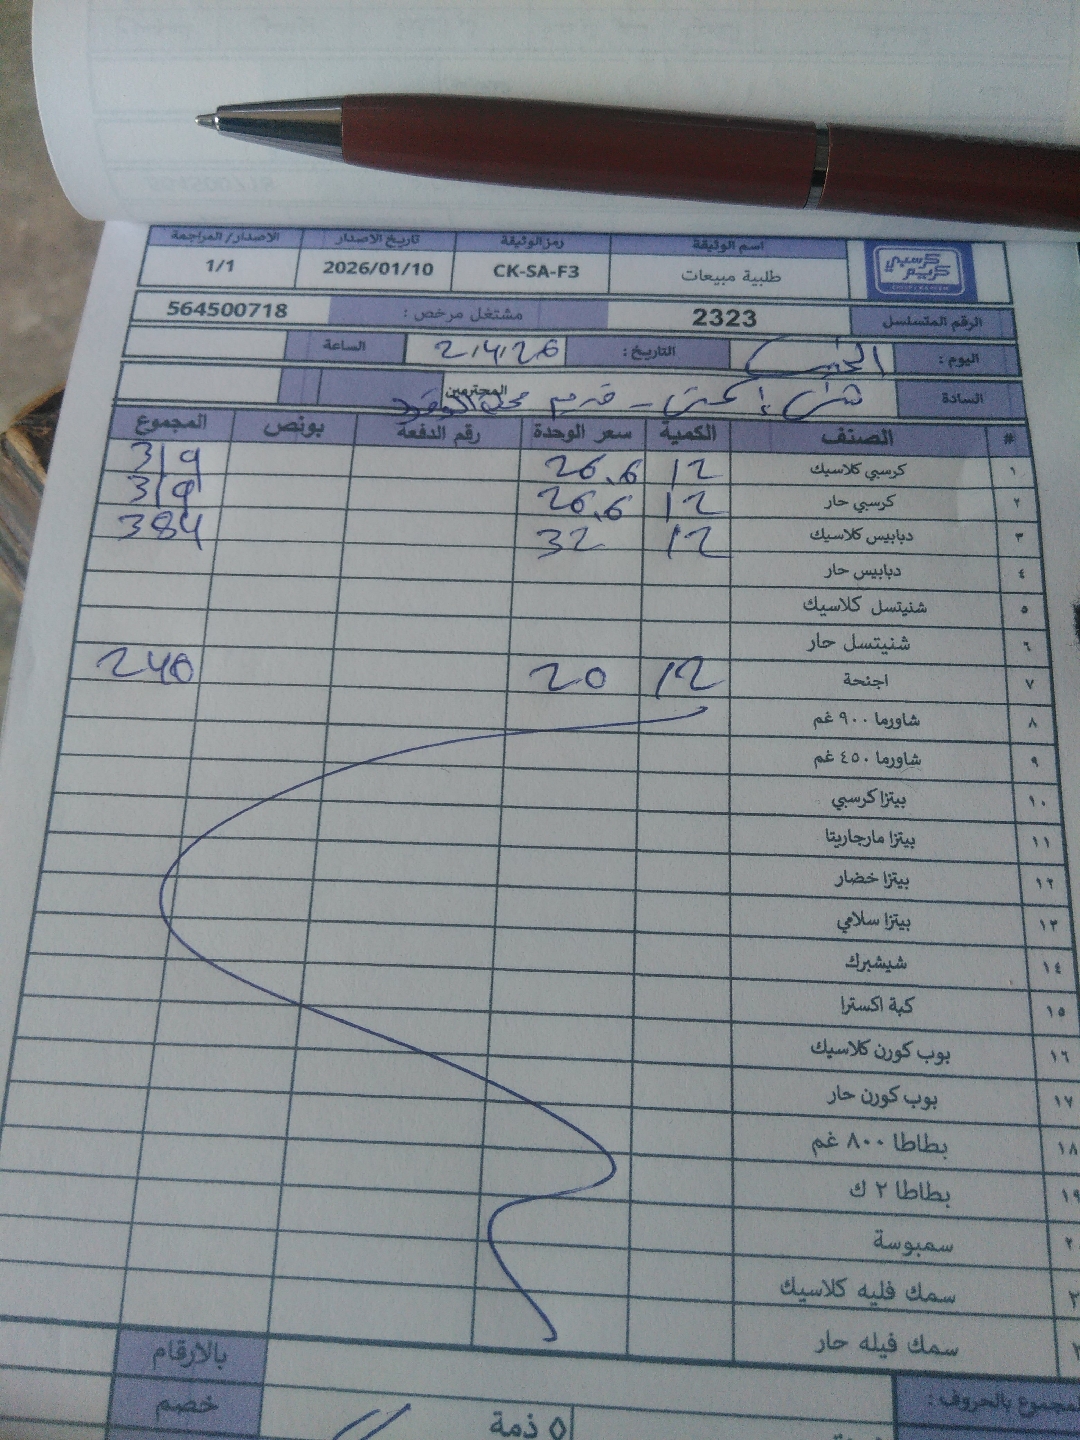 اسم الوثيقة رمز الوثيقة تاريخ الاصدار الاصدار/ المراجعة
كرسبي كريم طلبية مبيعات CK-SA-F3 2026/01/10 1/1
الرقم المتسلسل 2323 مشتغل مرخص : 564500718
اليوم : الخميس التاريخ : 2.4.26 الساعة
السادة المحترمين
# الصنف الكمية سعر الوحدة رقم الدفعة بونص المجموع
١ كرسبي كلاسيك 12 26.6 319
٢ كرسبي حار 12 26.6 319
٣ دبابيس كلاسيك 12 32 384
٤ دبابيس حار
٥ شنيتسل كلاسيك
٦ شنيتسل حار
٧ اجنحة 12 20 240
٨ شاورما ٩٠٠ غم
٩ شاورما ٤٥٠ غم
١٠ بيتزا كرسبي
١١ بيتزا مارجاريتا
١٢ بيتزا خضار
١٣ بيتزا سلامي
١٤ شيشبرك
١٥ كبة اكسترا
١٦ بوب كورن كلاسيك
١٧ بوب كورن حار
١٨ بطاطا ٨٠٠ غم
١٩ بطاطا ٢ ك
سمبوسة
سمك فليه كلاسيك
سمك فيله حار
بالارقام
المجموع بالحروف :
خصم
ذمة